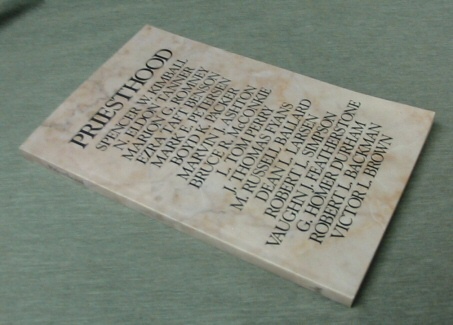 PRIESTHOOD
SPENCER W. KIMBALL
N. ELDON TANNER
MARION G. ROMNEY
EZRA TAFT BENSON
MARK E. PETERSEN
BOYD K. PACKER
MARVIN J. ASHTON
BRUCE R. MCCONKIE
L. TOM PERRY
J. THOMAS FYANS
M. RUSSELL BALLARD
DEAN L. LARSEN
ROBERT L. SIMPSON
VAUGHN J. FEATHERSTONE
G. HOMER DURHAM
ROBERT L. BACKMAN
VICTOR L. BROWN